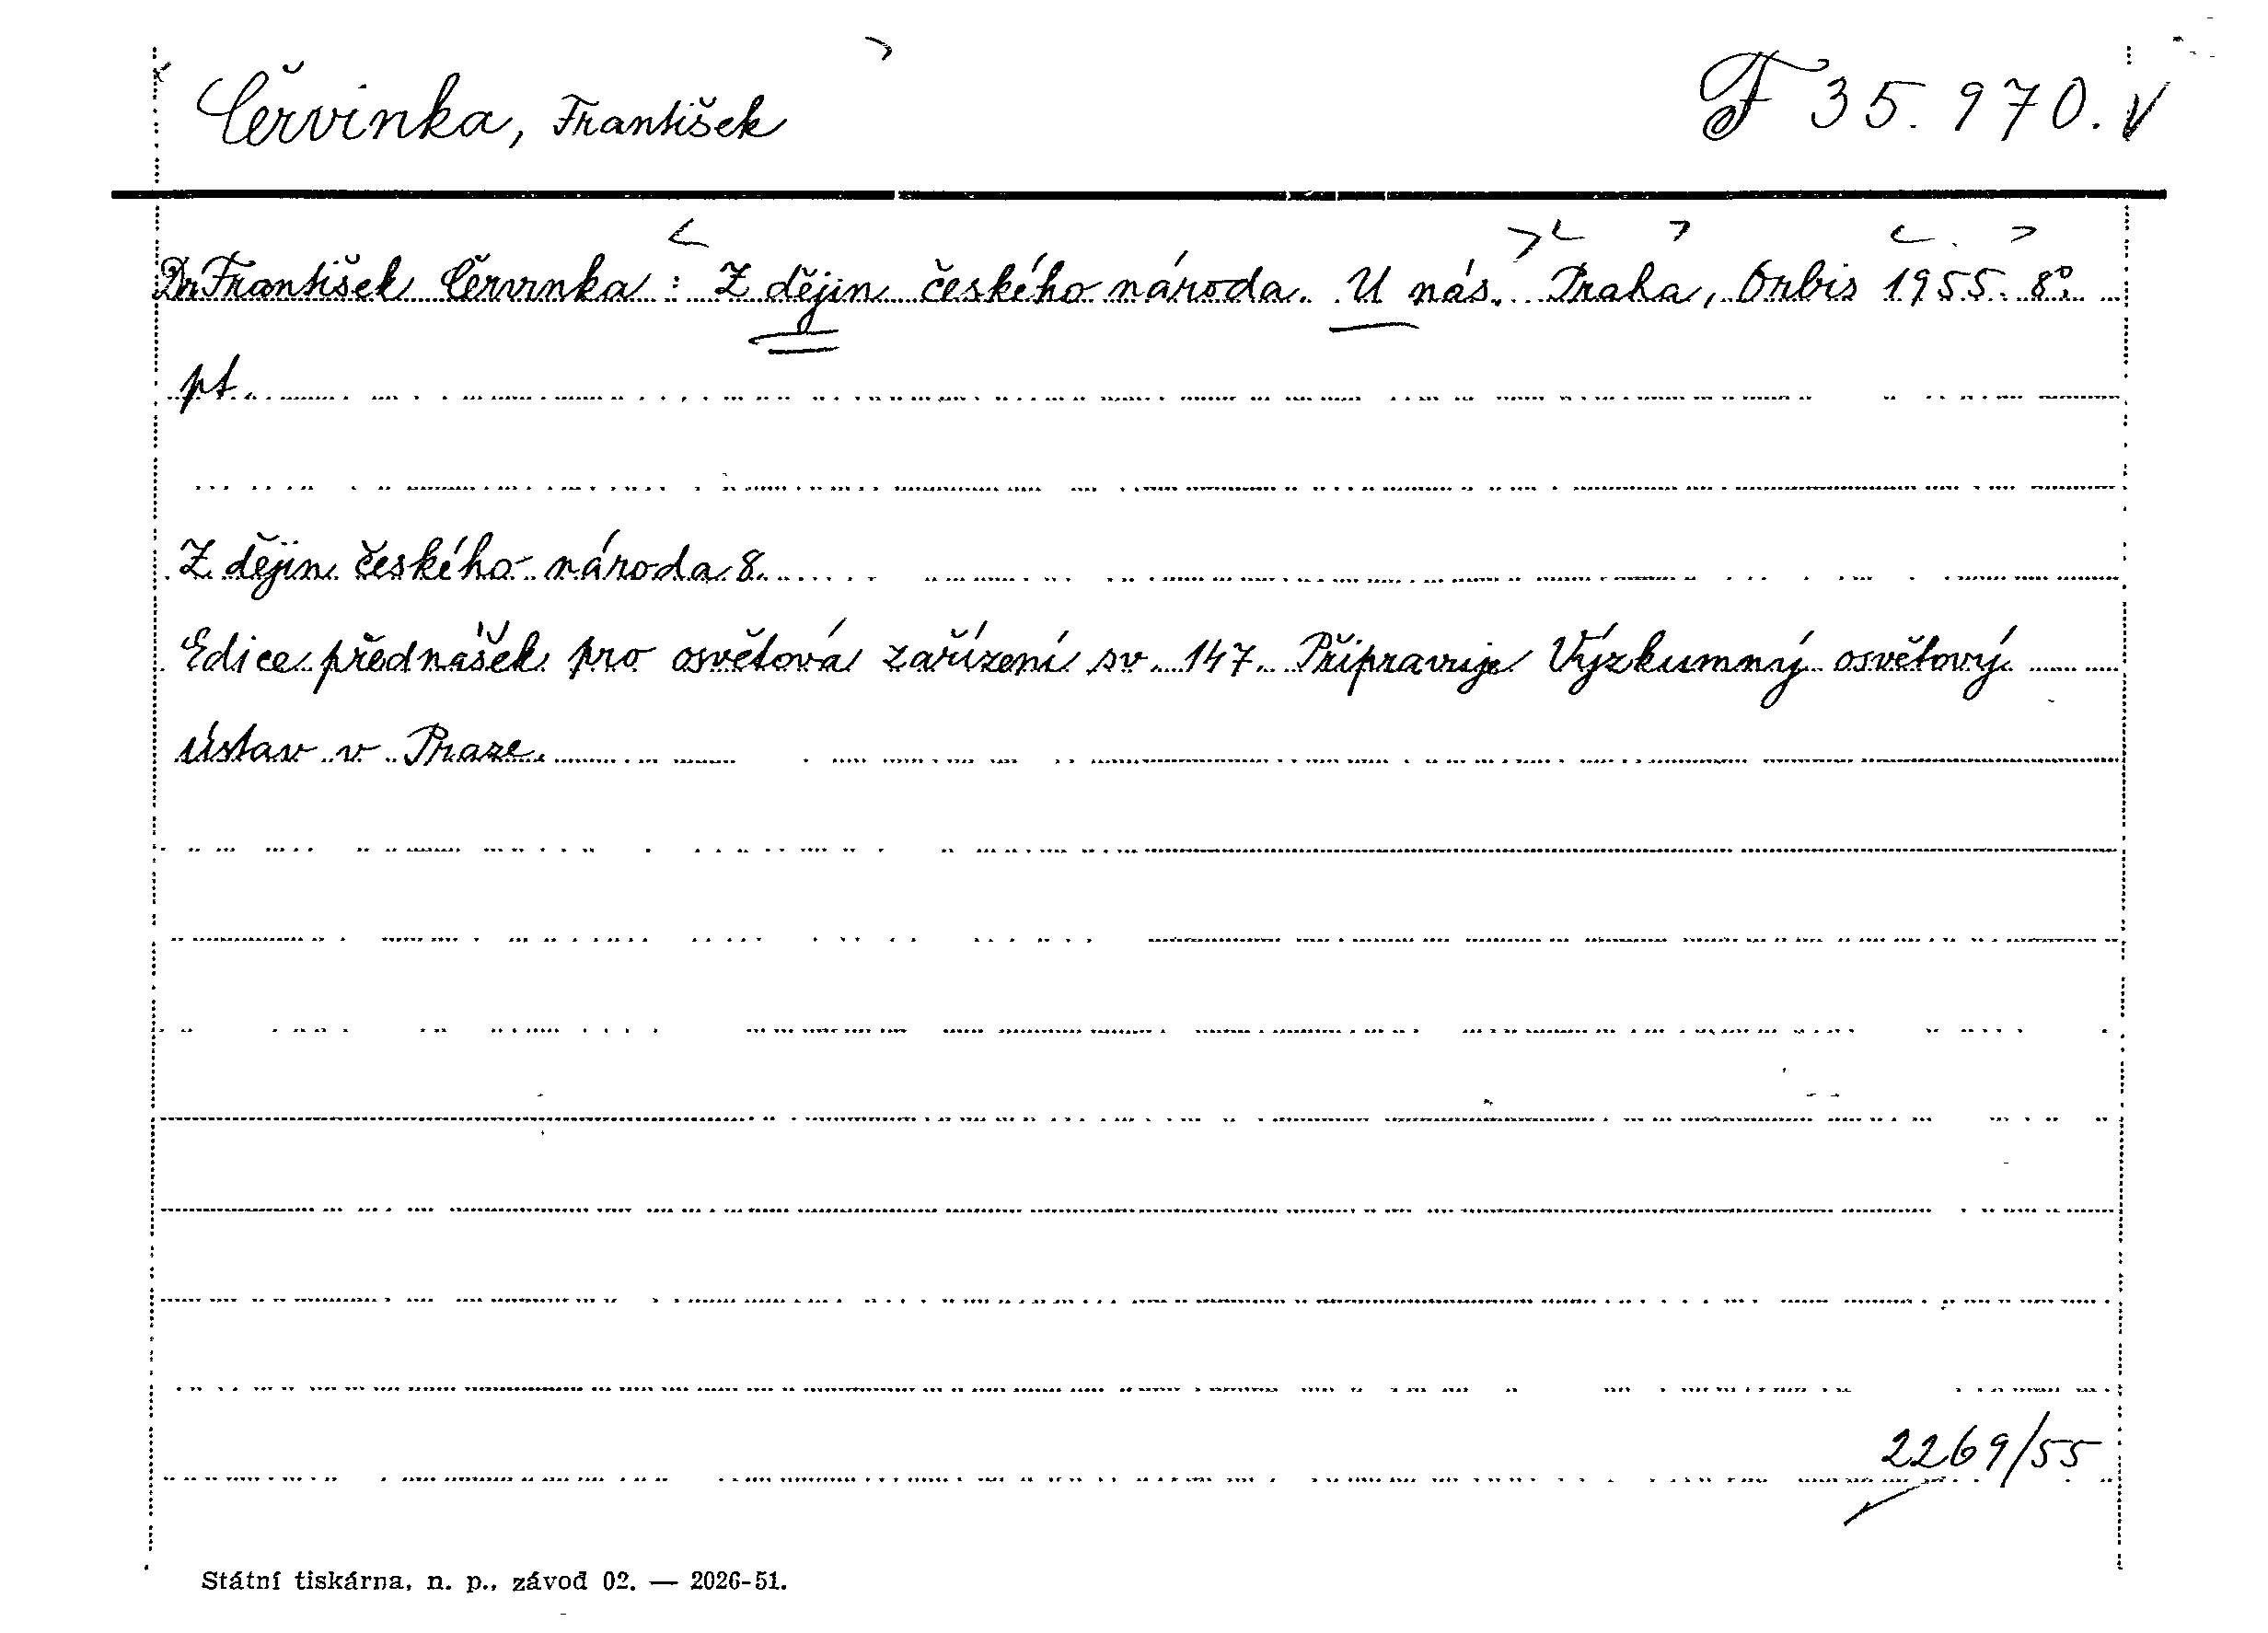 Červinka, František F 35.970. V
Dr František Červinka: Z dějin českého národa. U nás. Praha, Orbis 1955. 8°.
pt.
Z dějin českého národa 8.
Edice přednášek pro osvětová zařízení sv. 147. Připravuje Výzkumný osvětový
ústav v Praze.
2269/55
Státní tiskárna, n. p., závod 02. — 2026-51.